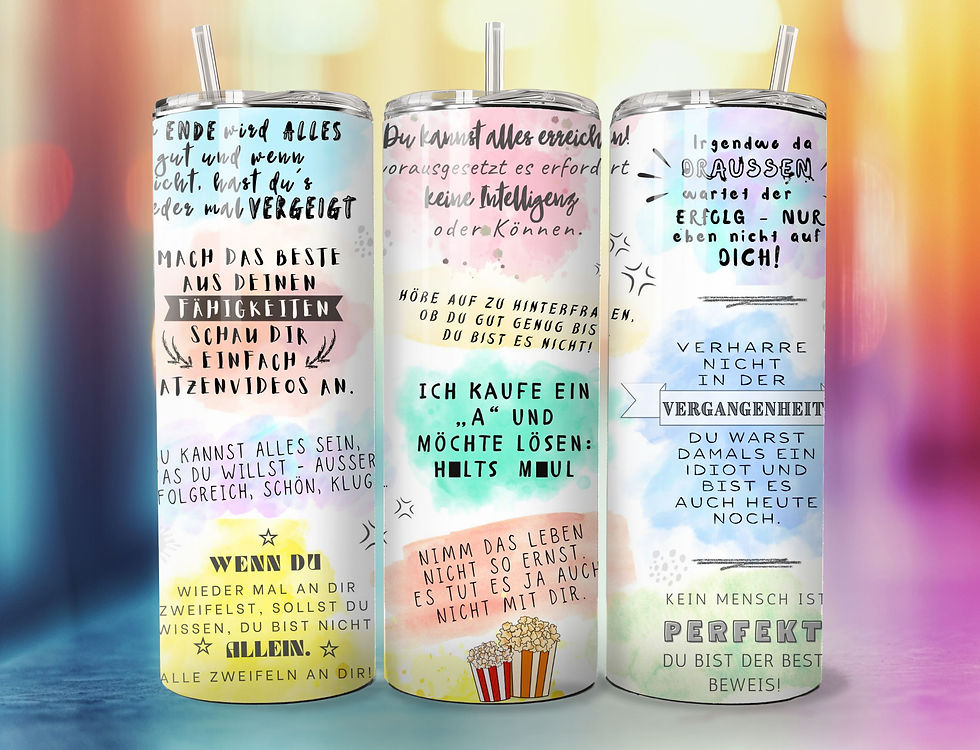 ENDE wird ALLES
gut und wenn
icht, hast du's
eder mal VERGEIGT
MACH DAS BESTE
AUS DEINEN
FÄHIGKEITEN
SCHAU DIR
EINFACH
ATZENVIDEOS AN.
U KANNST ALLES SEIN,
AS DU WILLST - AUSSER
FOLGREICH, SCHÖN, KLUG...
WENN DU
WIEDER MAL AN DIR
ZWEIFELST, SOLLST DU
WISSEN, DU BIST NICHT
ALLEIN.
ALLE ZWEIFELN AN DIR!
Du kannst alles erreichen!
vorausgesetzt es erfordert
keine Intelligenz
oder Können.
HÖRE AUF ZU HINTERFRAGEN,
OB DU GUT GENUG BIS
DU BIST ES NICHT!
ICH KAUFE EIN
„A“ UND
MÖCHTE LÖSEN:
H■LTS M■UL
NIMM DAS LEBEN
NICHT SO ERNST.
ES TUT ES JA AUCH
NICHT MIT DIR.
Irgendwo da
DRAUSSEN
wartet der
ERFOLG - NUR
eben nicht auf
DICH!
VERHARRE
NICHT
IN DER
VERGANGENHEIT
DU WARST
DAMALS EIN
IDIOT UND
BIST ES
AUCH HEUTE
NOCH.
KEIN MENSCH IST
PERFEKT
DU BIST DER BEST
BEWEIS!